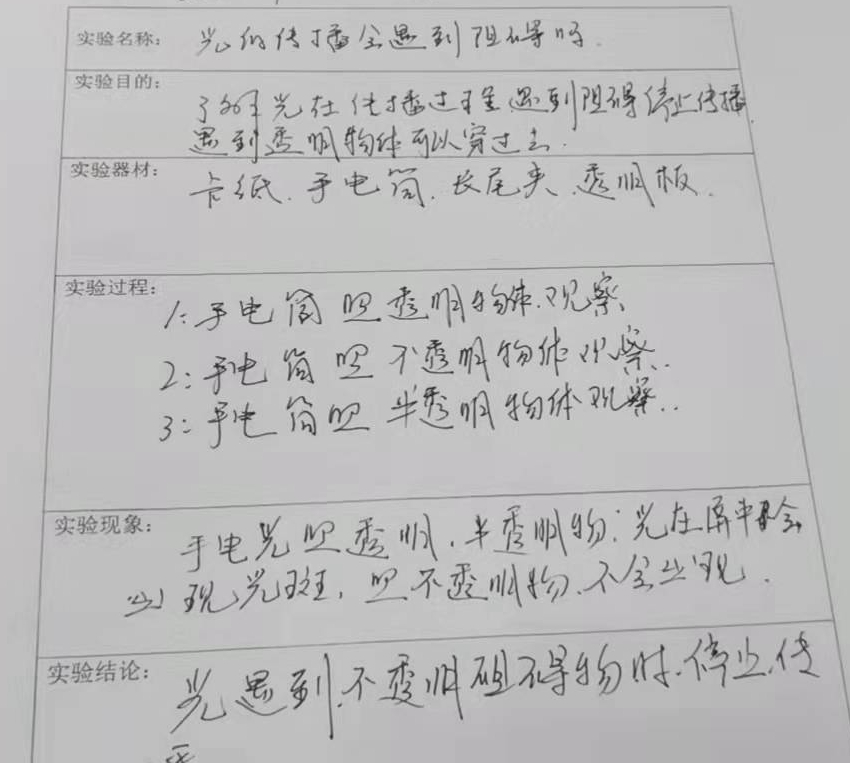 实验名称: 光的传播会遇到阻碍吗.
实验目的:
了解光在传播过程遇到阻碍停止传播.
遇到透明物体可以穿过去.
实验器材: 卡纸. 手电筒. 长尾夹. 透明板.
实验过程:
1: 手电筒照透明物体.观察
2: 手电筒照不透明物体观察..
3: 手电筒照半透明物体观察..
实验现象: 手电光照透明.半透明物:光在屏中会
出现光斑, 照不透明物.不会出现.
实验结论: 光遇到.不透明阻碍物时.停止.传